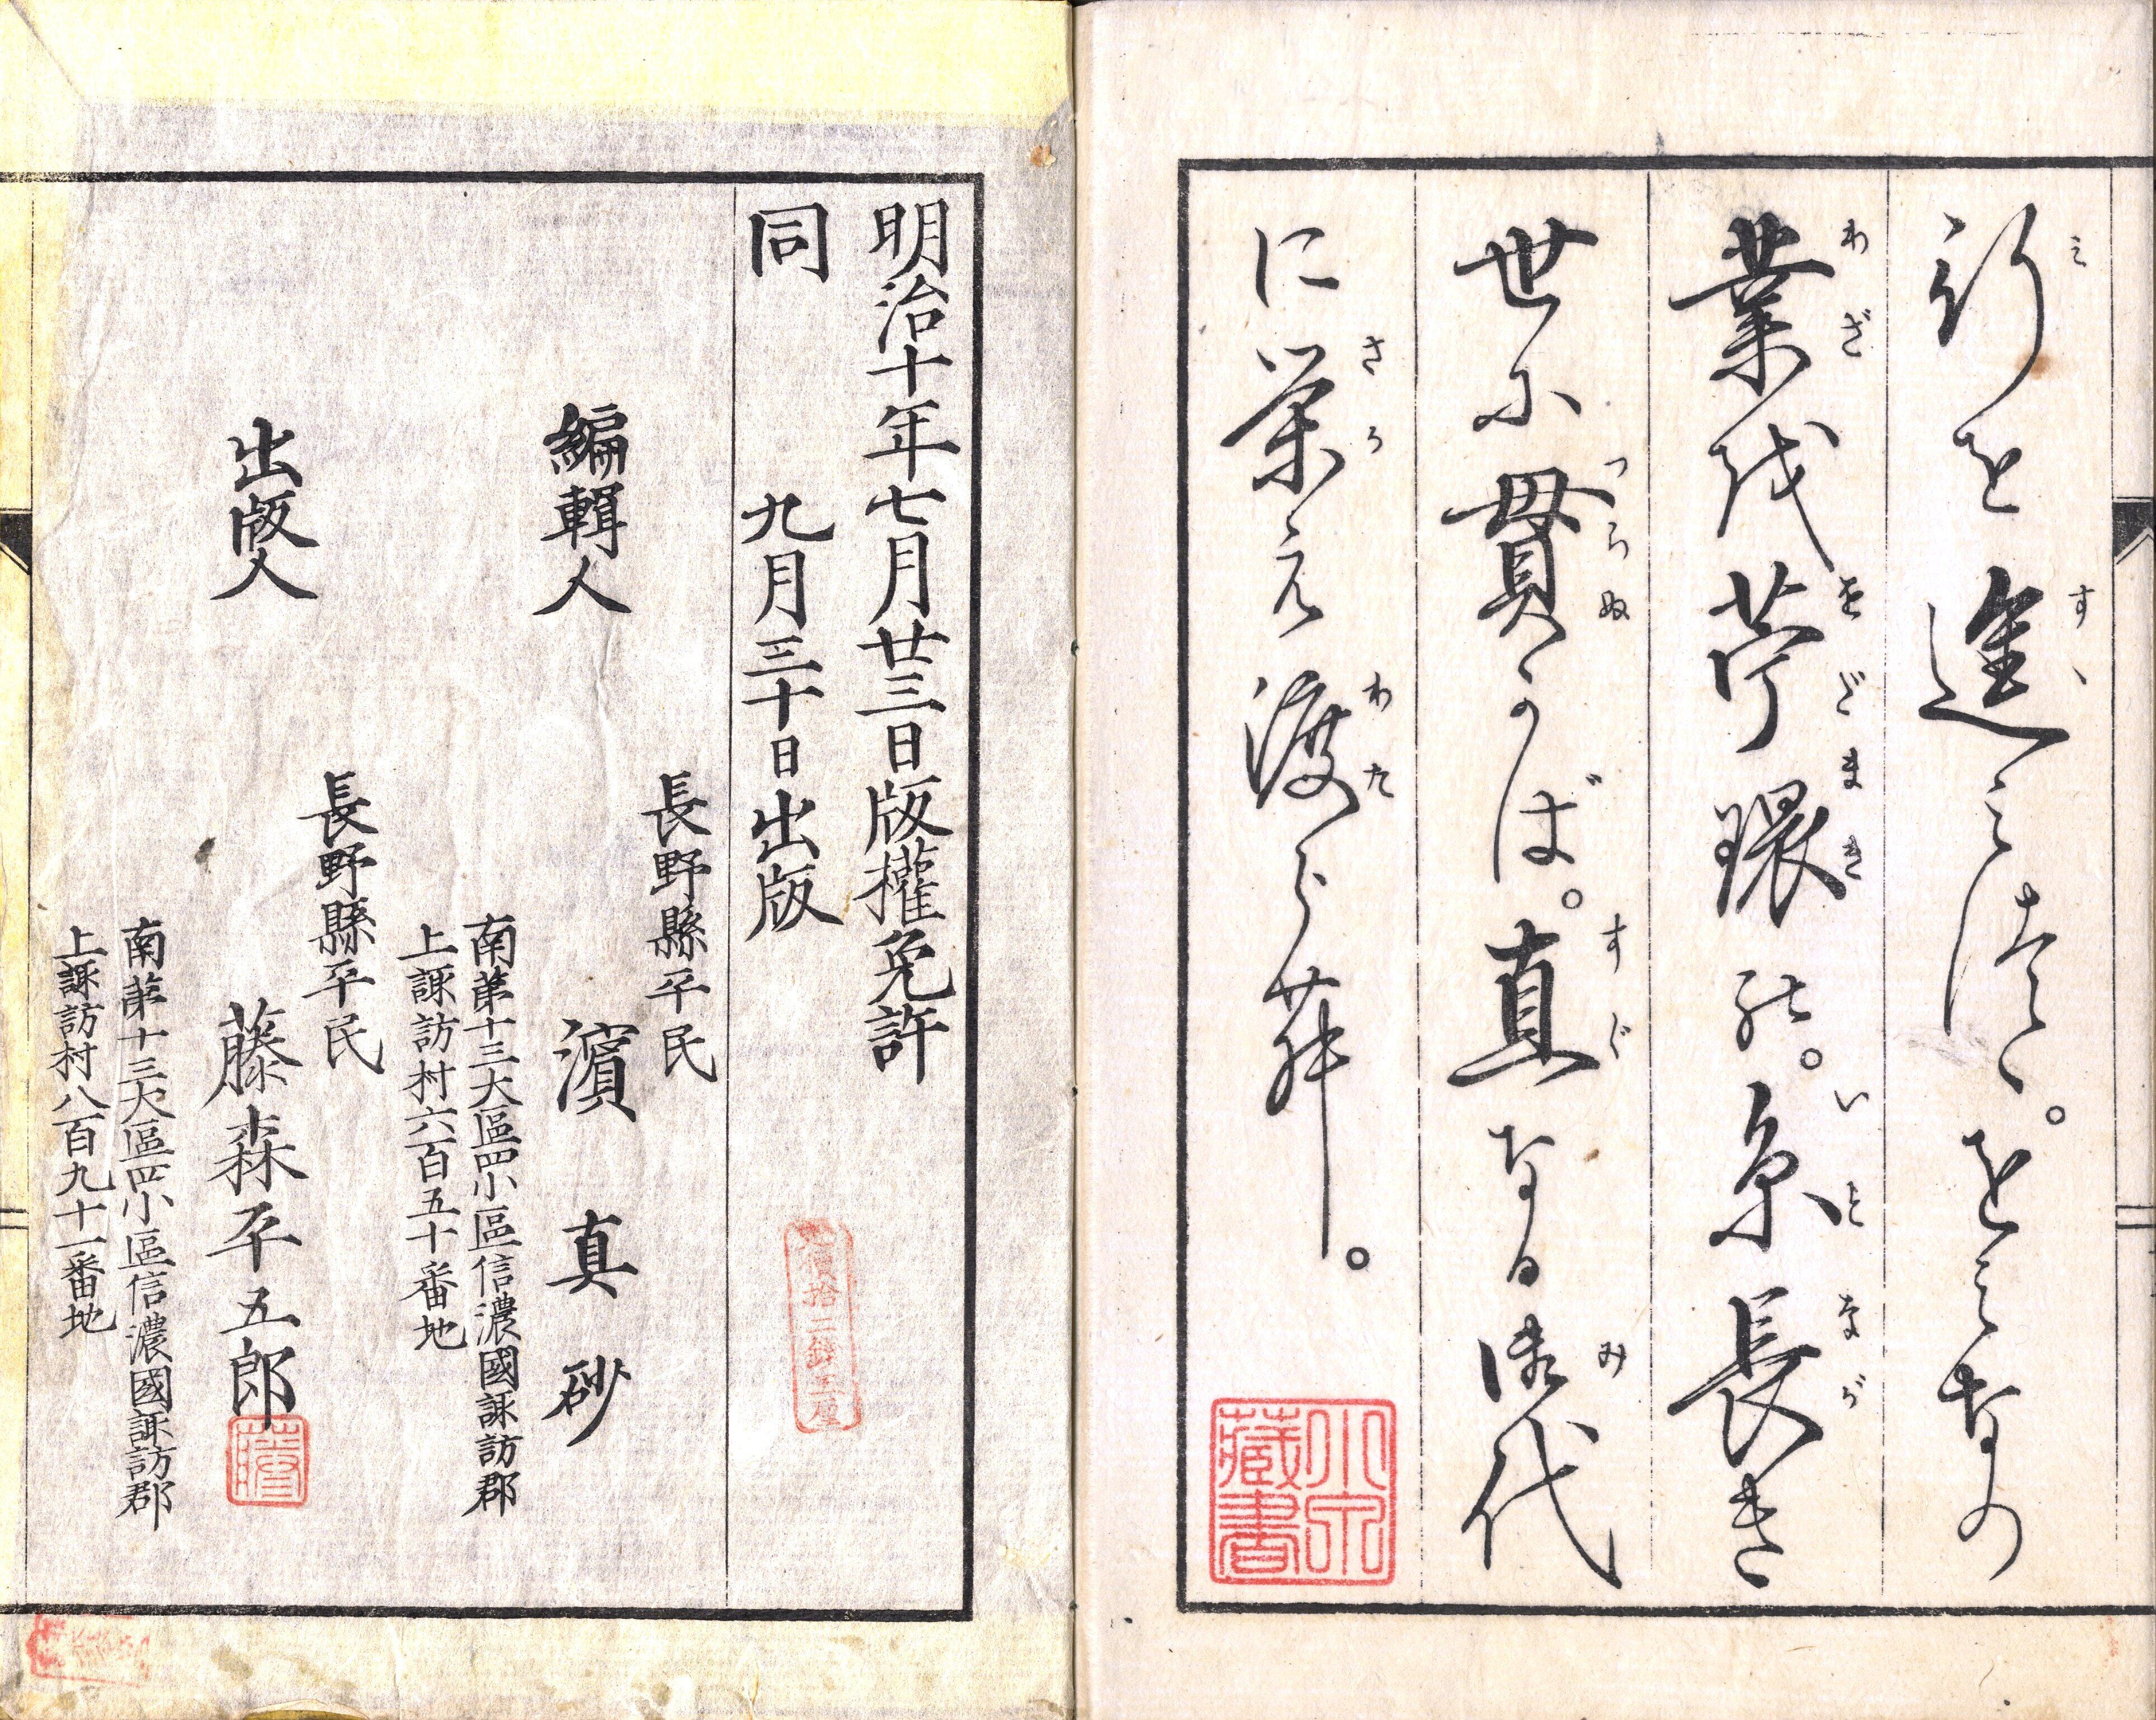 行を進みつゝ。をみなの
業を苧環の。糸長き
世に貫かば。真なる御代
に栄え渡らむ。
藏書
明治十年七月廿三日版權免許
同　九月三十日出版
價拾二錢五厘
長野縣平民
編輯人　濵真砂
南第十三大區四小區信濃國諏訪郡
上諏訪村六百五十番地
長野縣平民
出版人　藤森平五郎
南第十三大區四小區信濃國諏訪郡
上諏訪村八百九十一番地